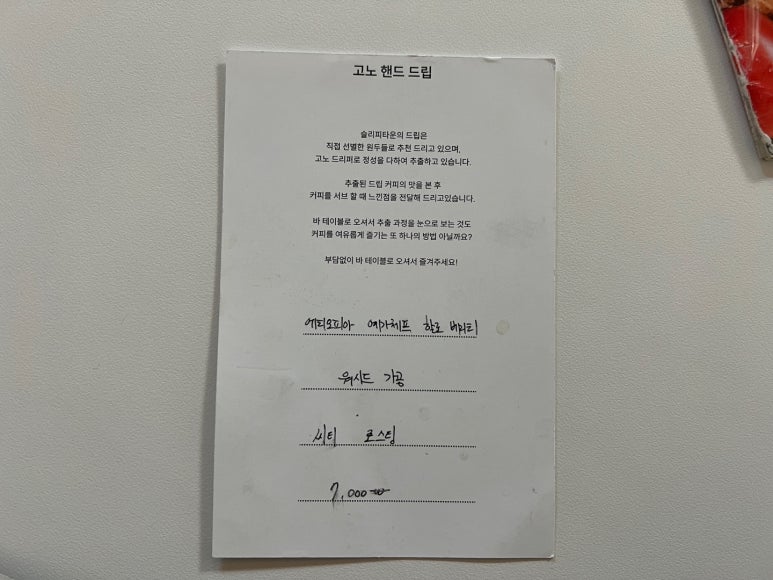 고노 핸드 드립
슬리피타운의 드립은
직접 선별한 원두들로 추천 드리고 있으며,
고노 드리퍼로 정성을 다하여 추출하고 있습니다.
추출된 드립 커피의 맛을 본 후
커피를 서브 할 때 느낀점을 전달해 드리고있습니다.
바 테이블로 오셔서 추출 과정을 눈으로 보는 것도
커피를 여유롭게 즐기는 또 하나의 방법 아닐까요?
부담없이 바 테이블로 오셔서 즐겨주세요!
에티오피아 예가체프 할로 베리티
워시드 가공
씨티 로스팅
7,000₩